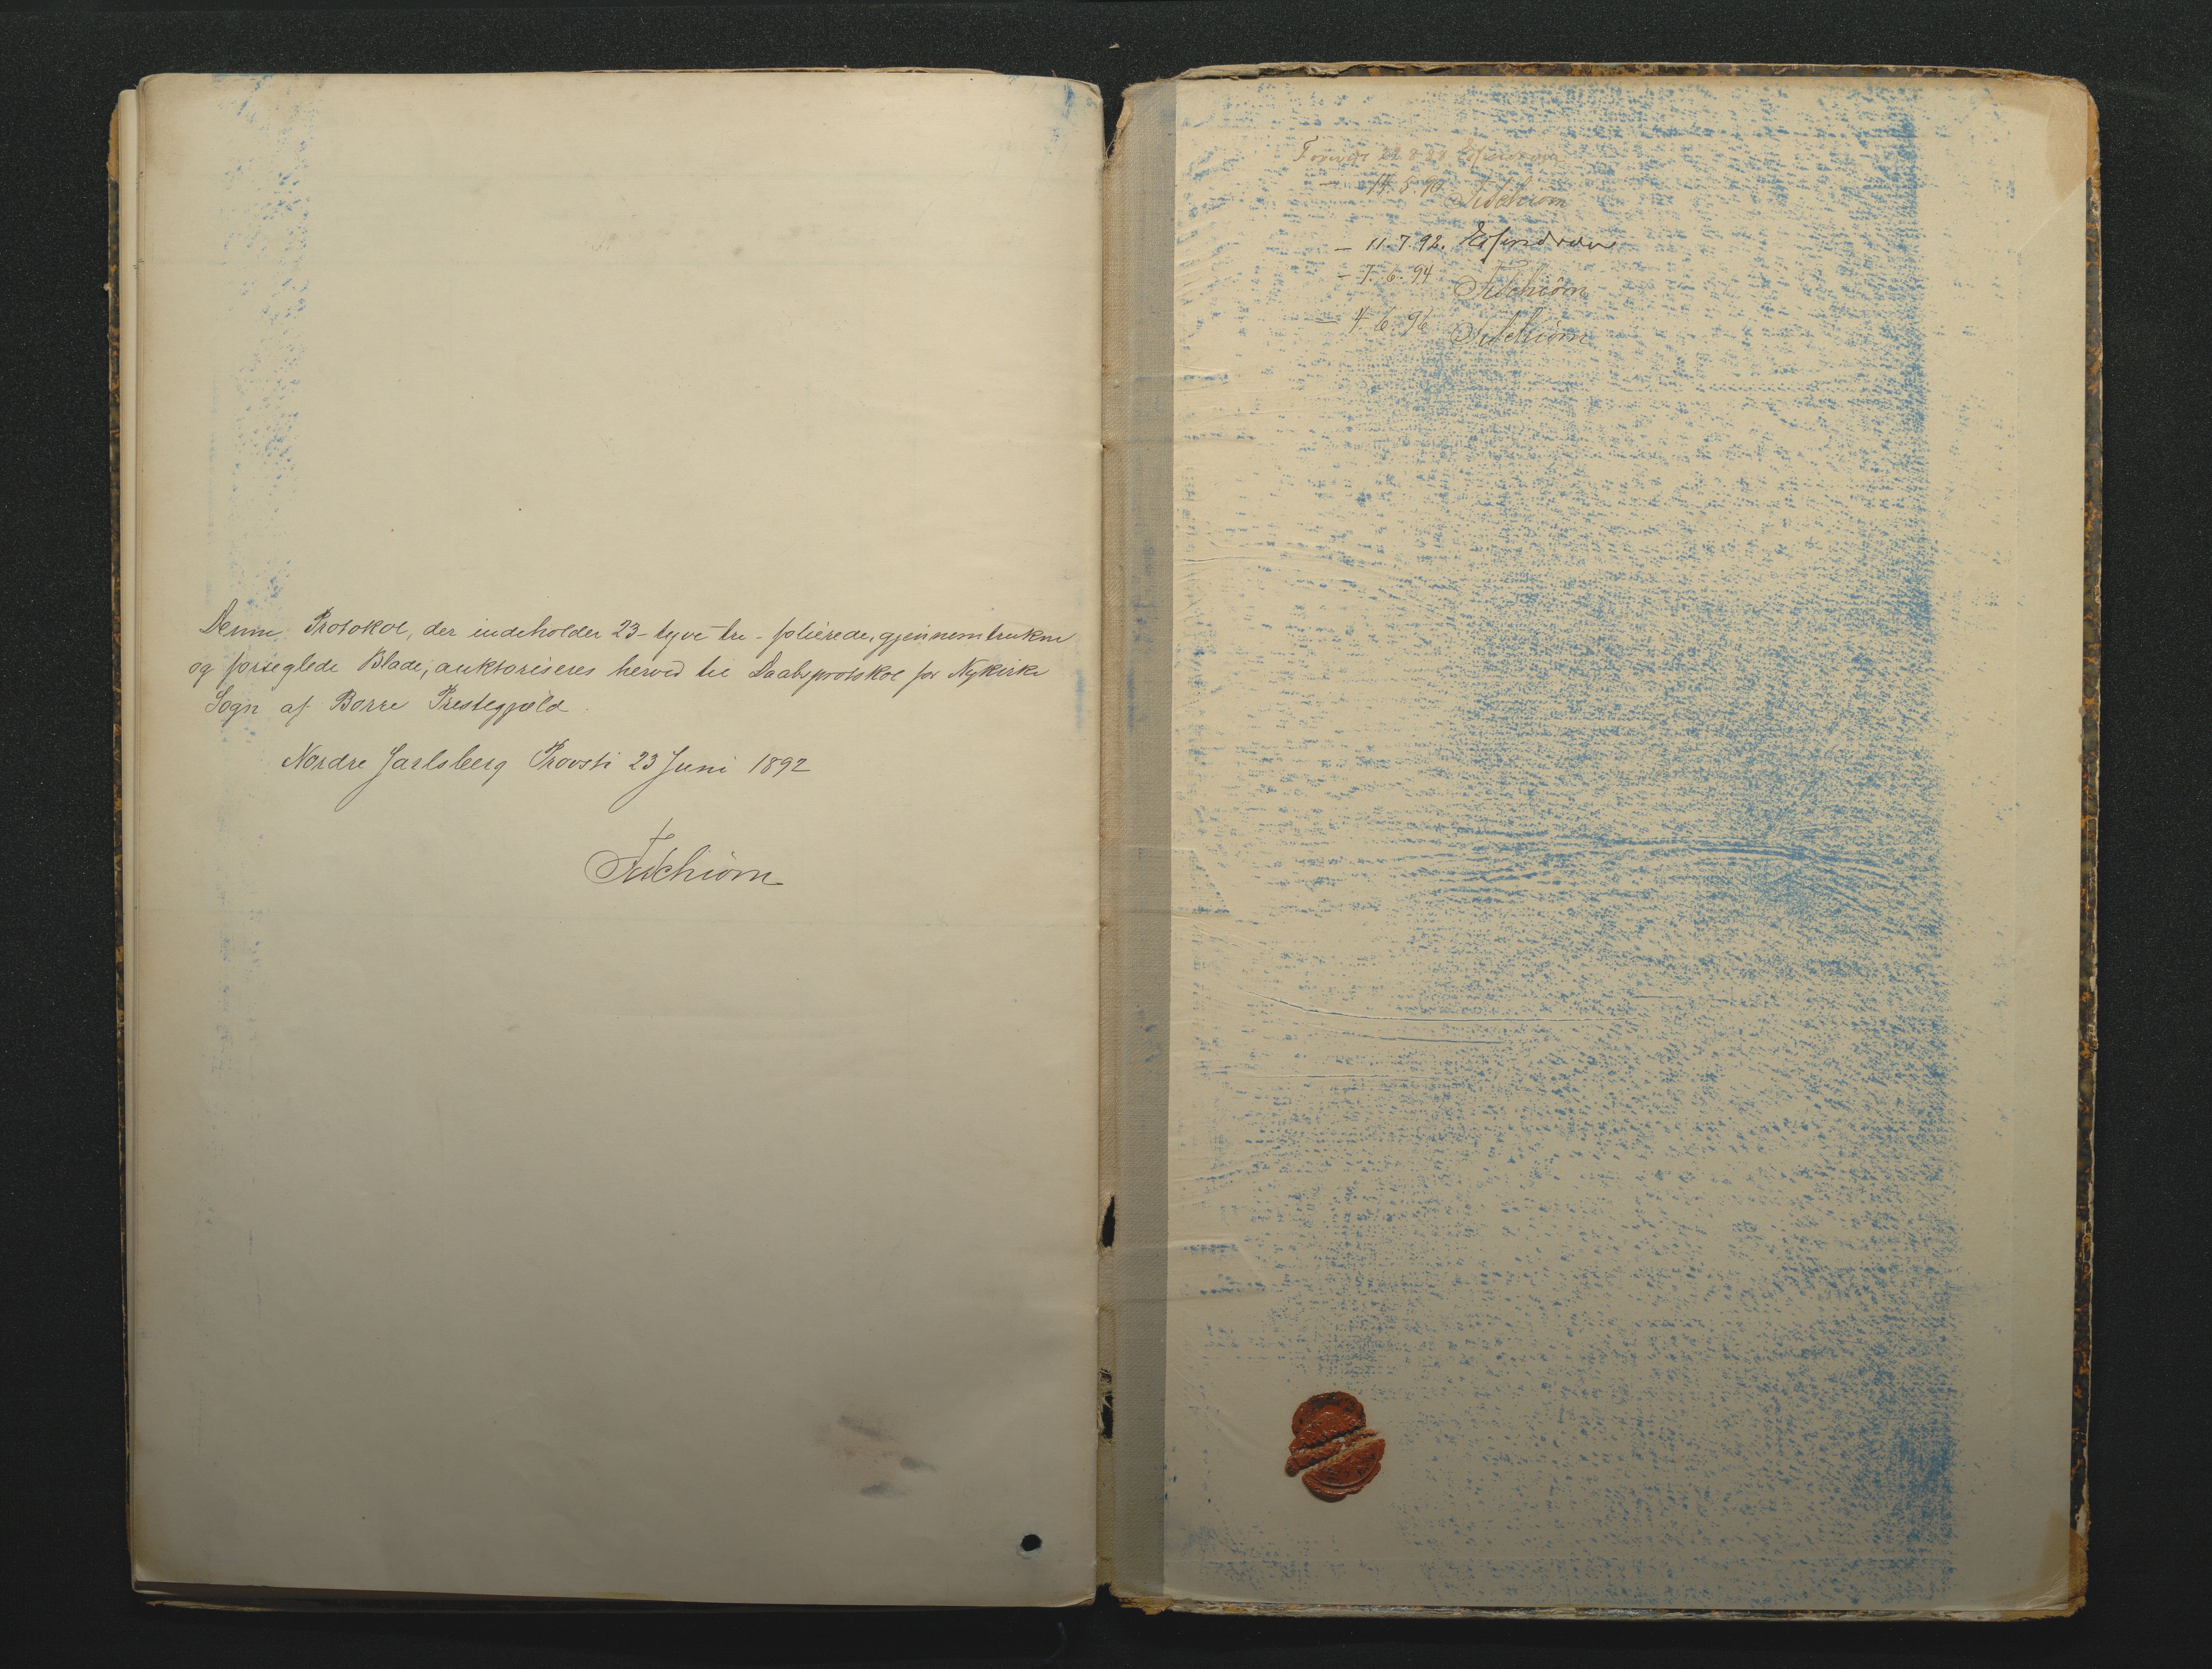 Denne Protokol, der indeholder 23 - tyve tre - foliérede, gjennemtrukne
og forseglede Blade, auktoriseres herved til Daabsprotokol for Nykirke
Sogn af Borre Prestegjæld.
Nordre Jarlsberg Provsti 23 Juni 1892
FrSchiörn
— 15.5.90 FrSchiörn
— 11.7.92.
— 7.6.94 FrSchiörn
— 4.6.96 FrSchiörn